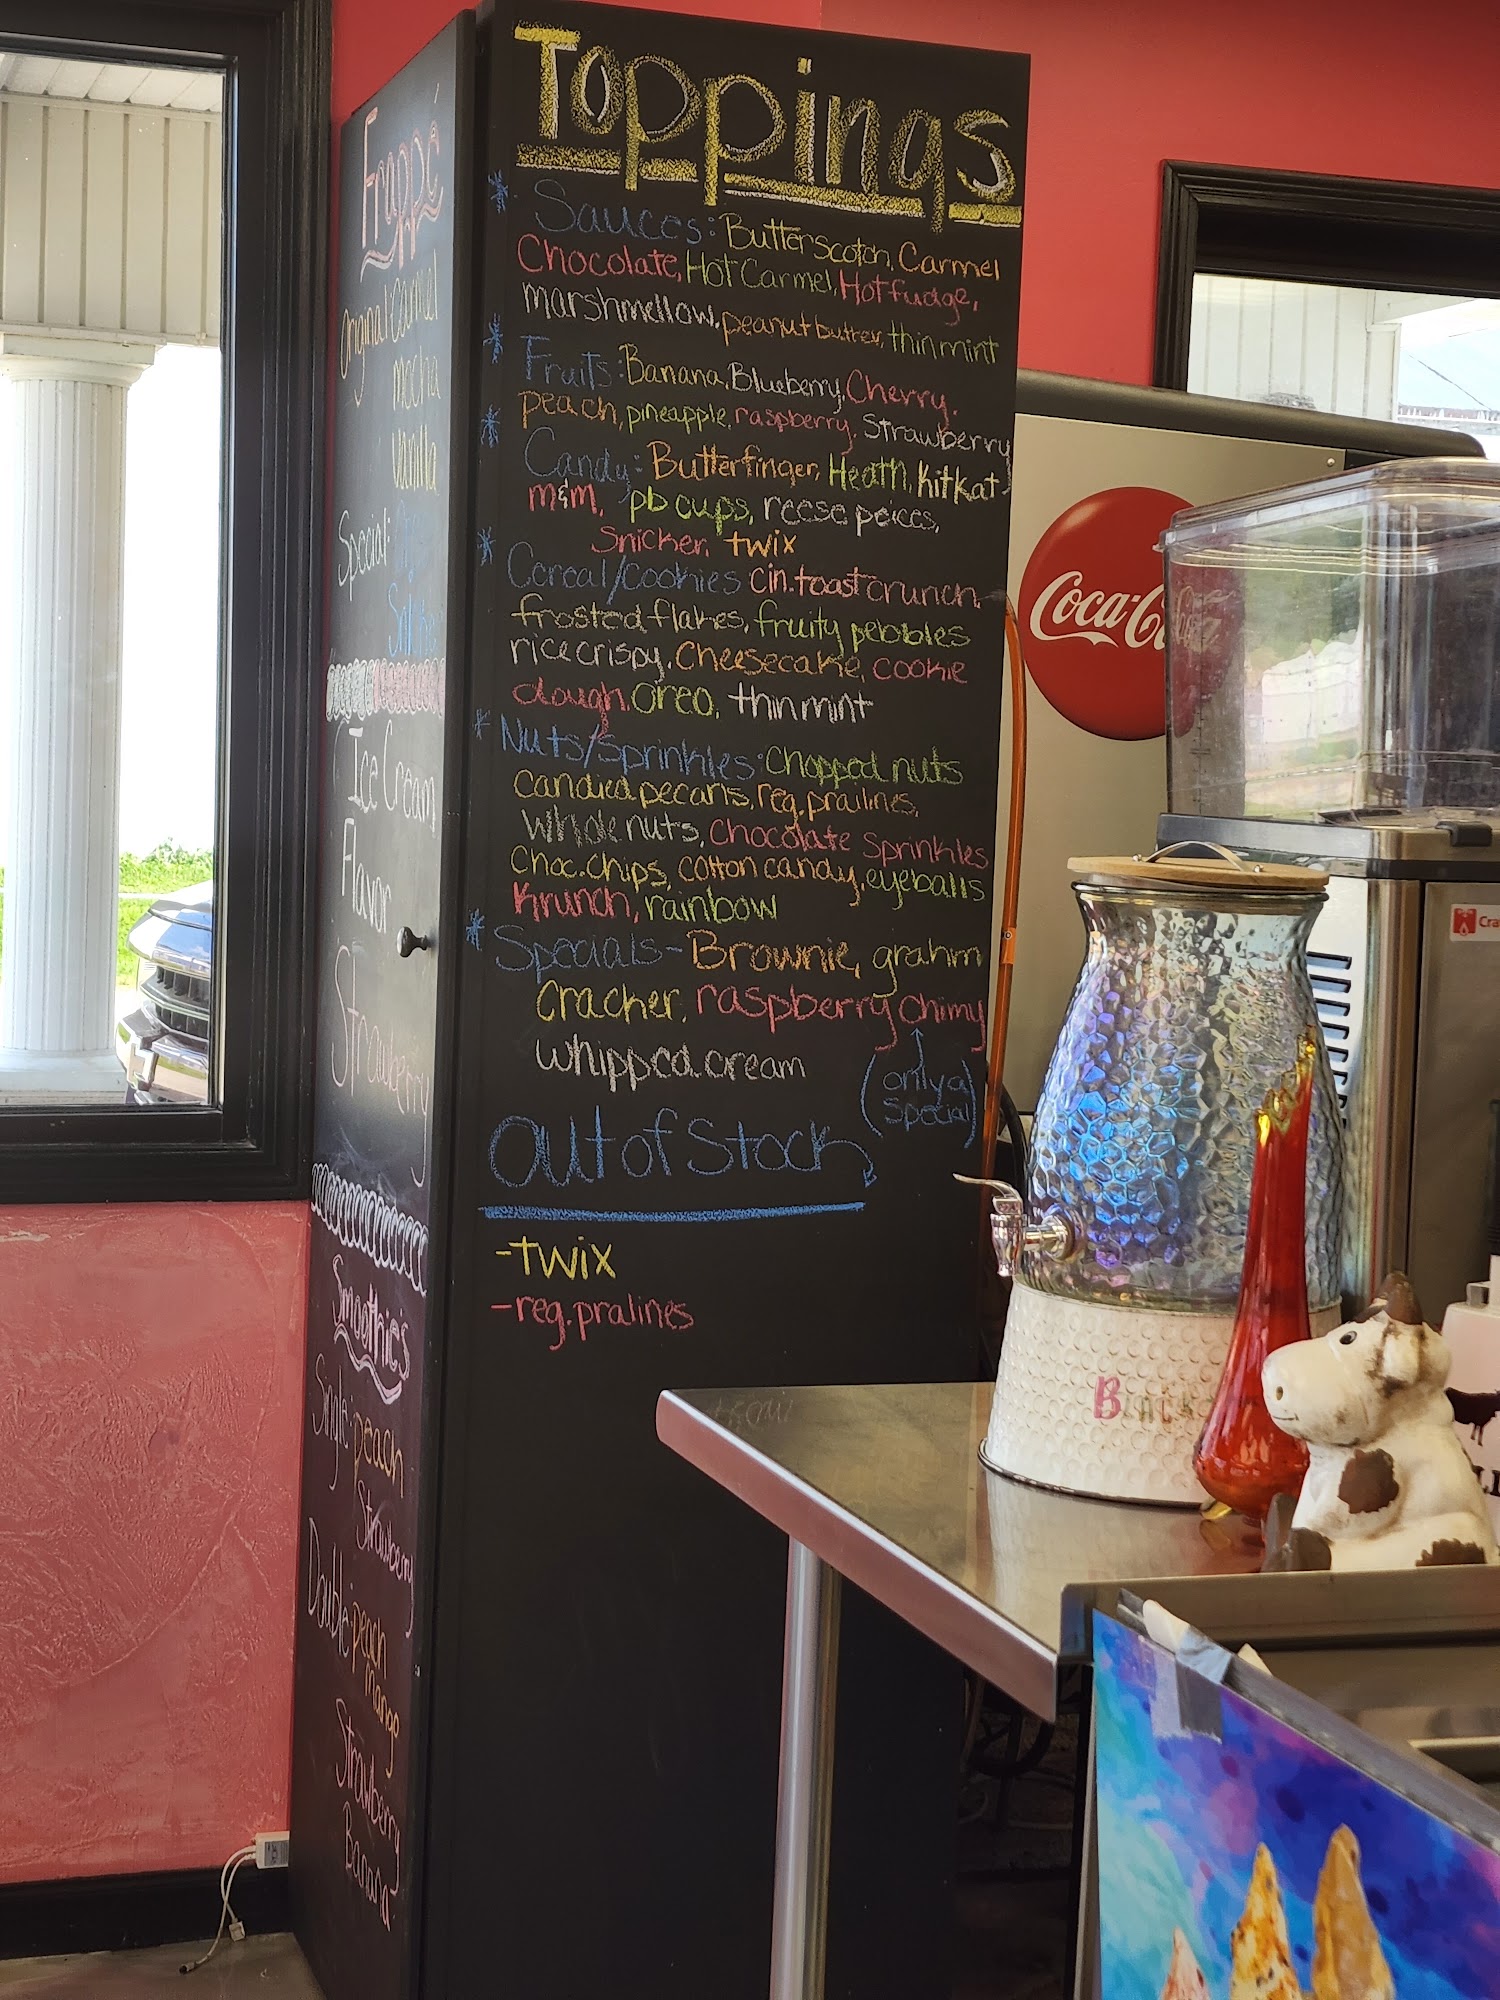 Frappé
Original: Carmel
mocha
vanilla
Special:
Ice Cream
Flavor
Strawberry
Smoothies
Single: peach
Strawberry
Double: peach
mango
Strawberry
Banana
Toppings
* Sauces: Butterscotch, Carmel
Chocolate, Hot Carmel, Hot fudge,
marshmellow, peanut butter, thin mint
* Fruits: Banana, Blueberry, Cherry,
peach, pineapple, raspberry, strawberry
* Candy: Butterfinger, Heath, kitkat,
m&m, pb cups, reese peices,
Snicker, twix
* Cereal/cookies cin.toast crunch,
frosted flakes, fruity pebbles
rice crispy, Cheesecake, cookie
dough, oreo, thin mint
* Nuts/Sprinkles: Chopped nuts
Candied pecans, reg. prailines,
Whole nuts, Chocolate Sprinkles
Choc. Chips, cotton candy, eyeballs
Krunch, rainbow
* Specials- Brownie, grahm
cracker, raspberry chimy
whipped cream
(only a
special)
Out of Stock
-twix
-reg. pralines
Coca-Co
Cra